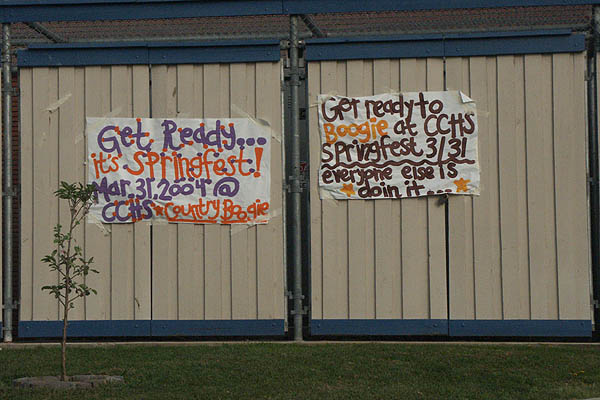 Get Ready...
it's Springfest!
Mar. 31. 2004 @
CCHS Country Boogie
Get ready to
Boogie at CCHS
springfest 3/31
everyone else is
doin it....